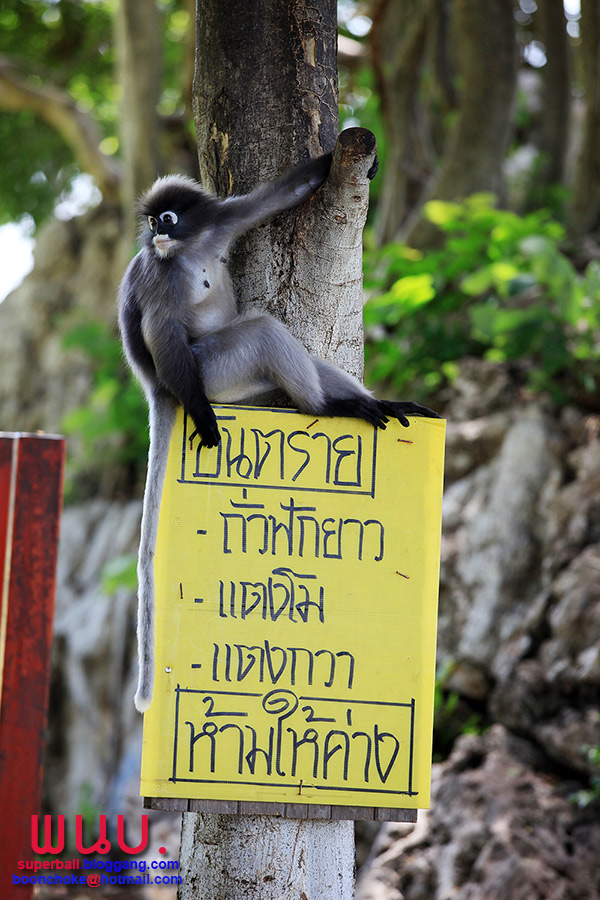 อันตราย
- ถั่วฝักยาว
- แตงโม
- แตงกวา
ห้ามให้ค่าง
พนบ.
superball.bloggang.com
boonehoke@hotmail.com